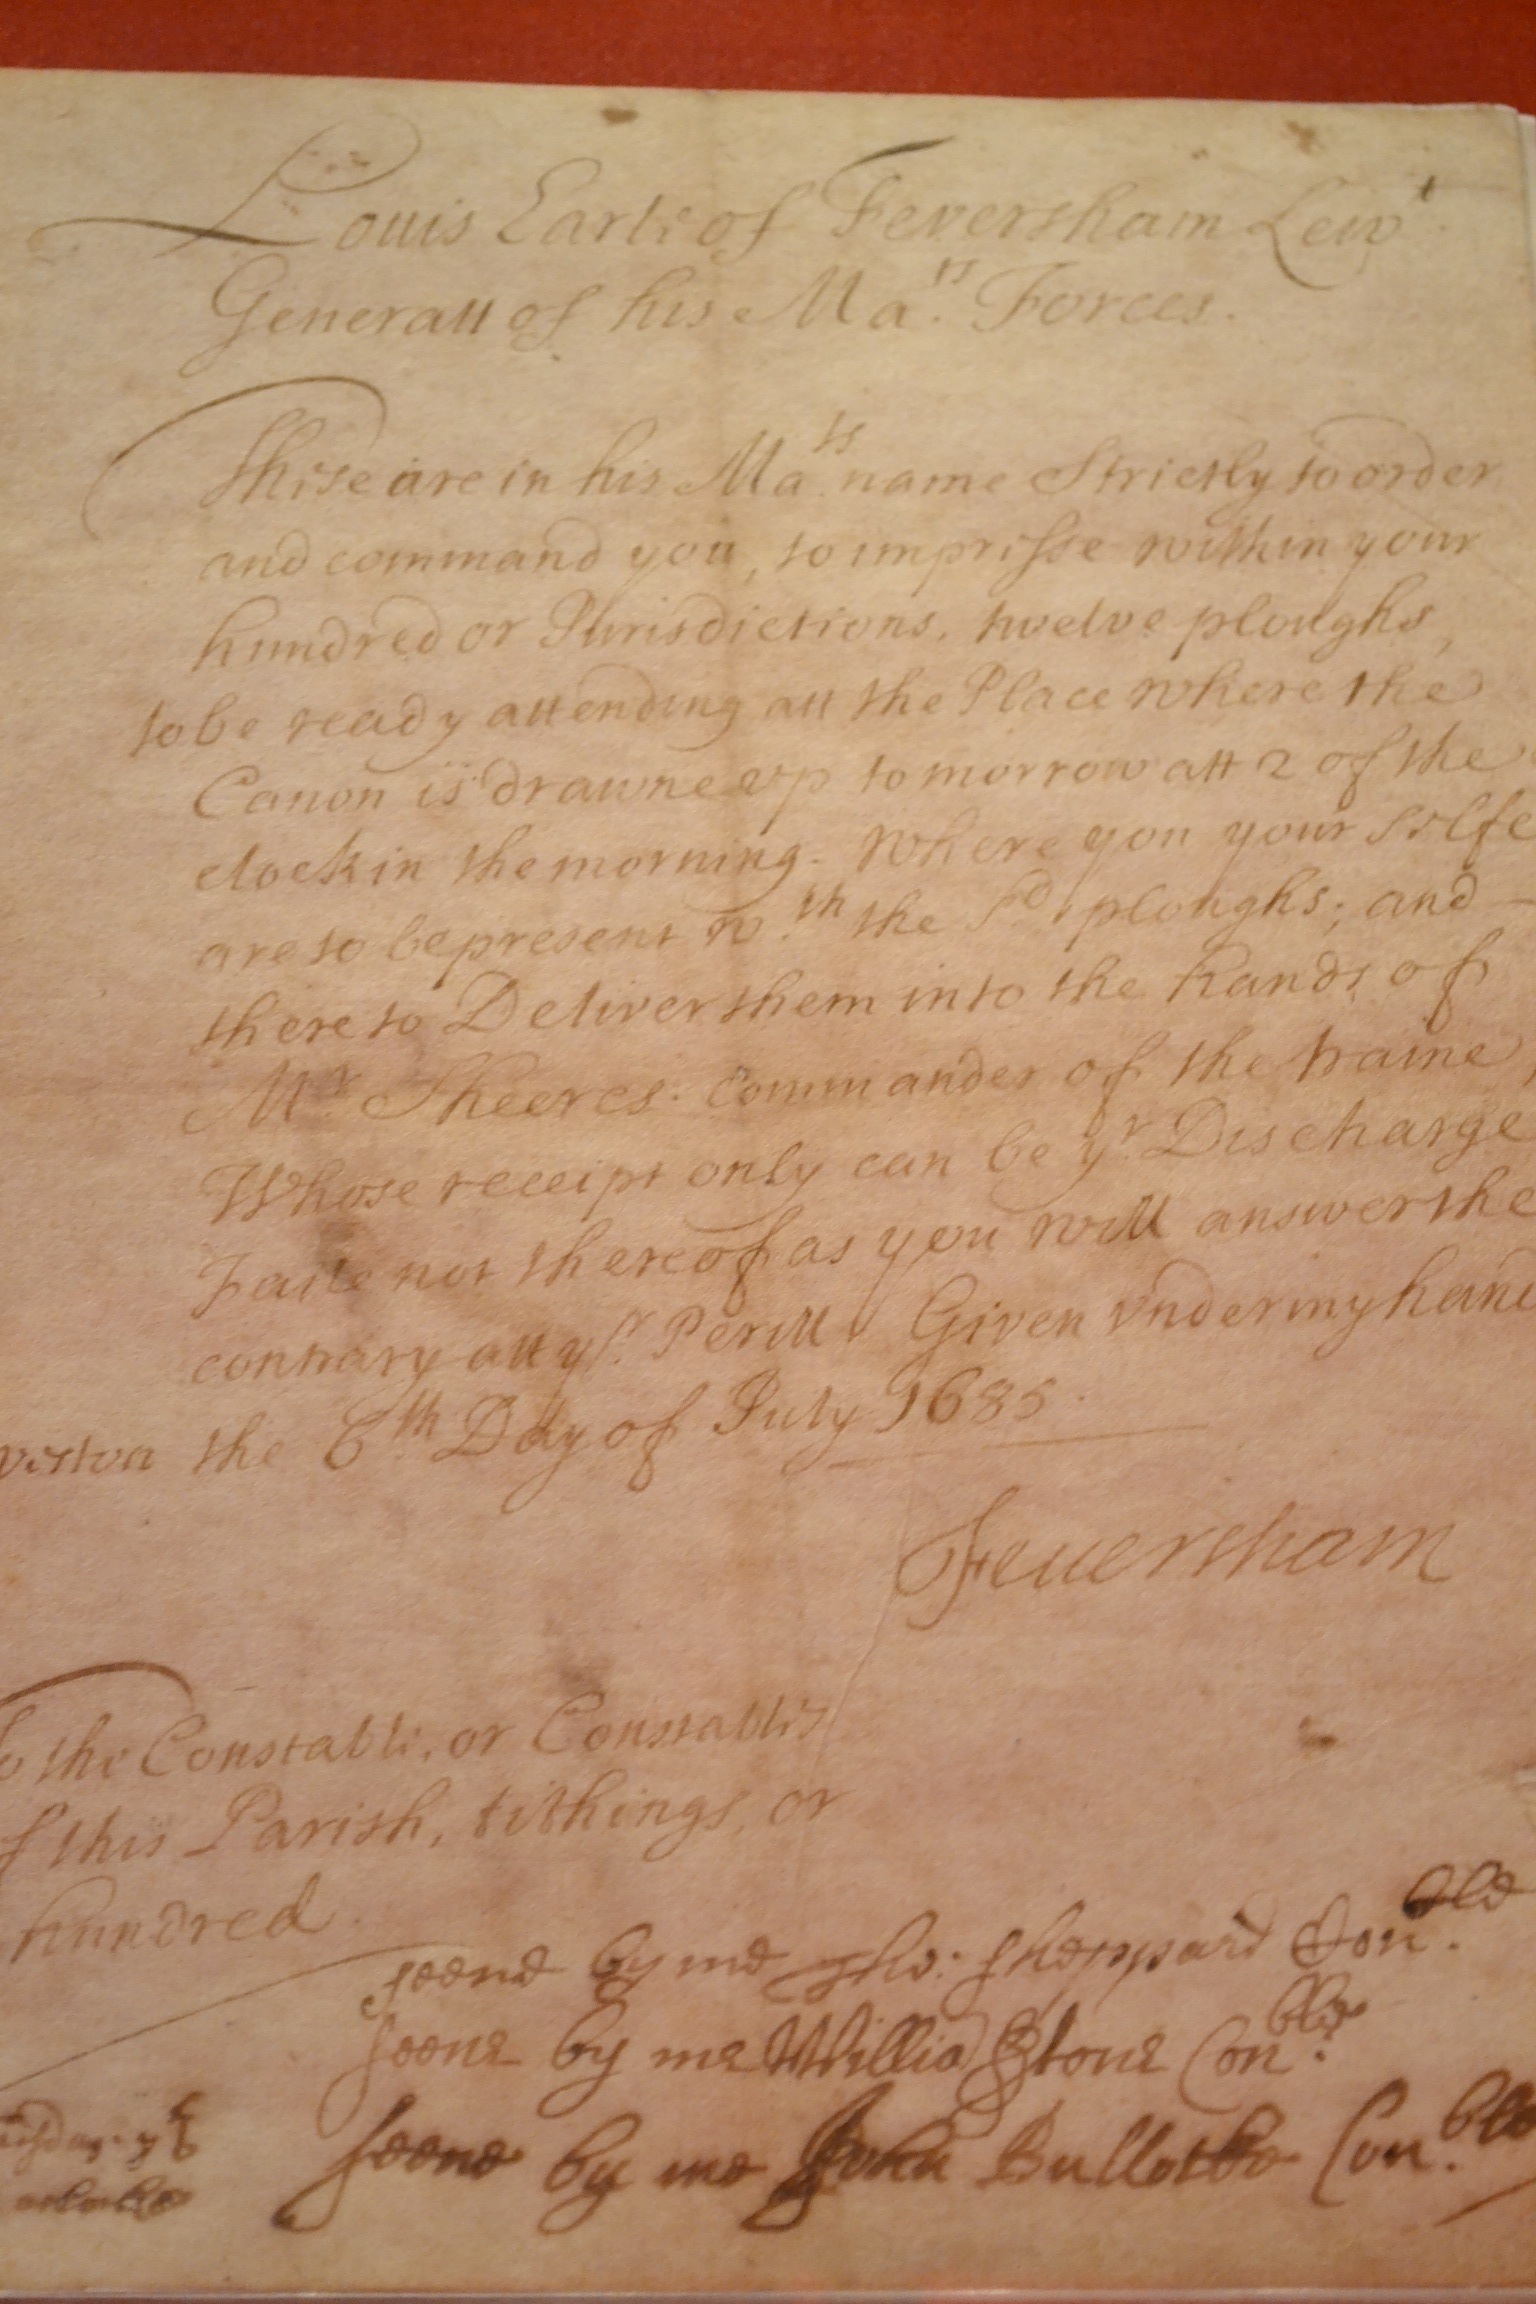 Louis Earle of Feversham Lewt.
Generall of his Ma.ts Forces.
These are in his Ma.ts name Strictly to order
and command you, to impresse within your
hundred or Jurisdictions, twelve ploughs,
to be ready attending att the Place where the
Canon is drawne vp to morrow att 2 of the
clock in the morning. Where you your selfe
are to be present w.th the sd ploughs; and
there to Deliver them into the hands of
Mr. Sheeres. Commander of the traine,
Whose receipt only can be yr. Discharge
Faile not thereof as you will answer the
contrary att yr. Perill Given vnder my hand
the 6th Day of July 1685.
Feuersham
the Constable, or Constables
this Parish, tithings, or
hundred
seene by me Tho: Sheppard Con.ble
seene by me Willia Stone Con.ble
seene by me John Bullocke Con.ble